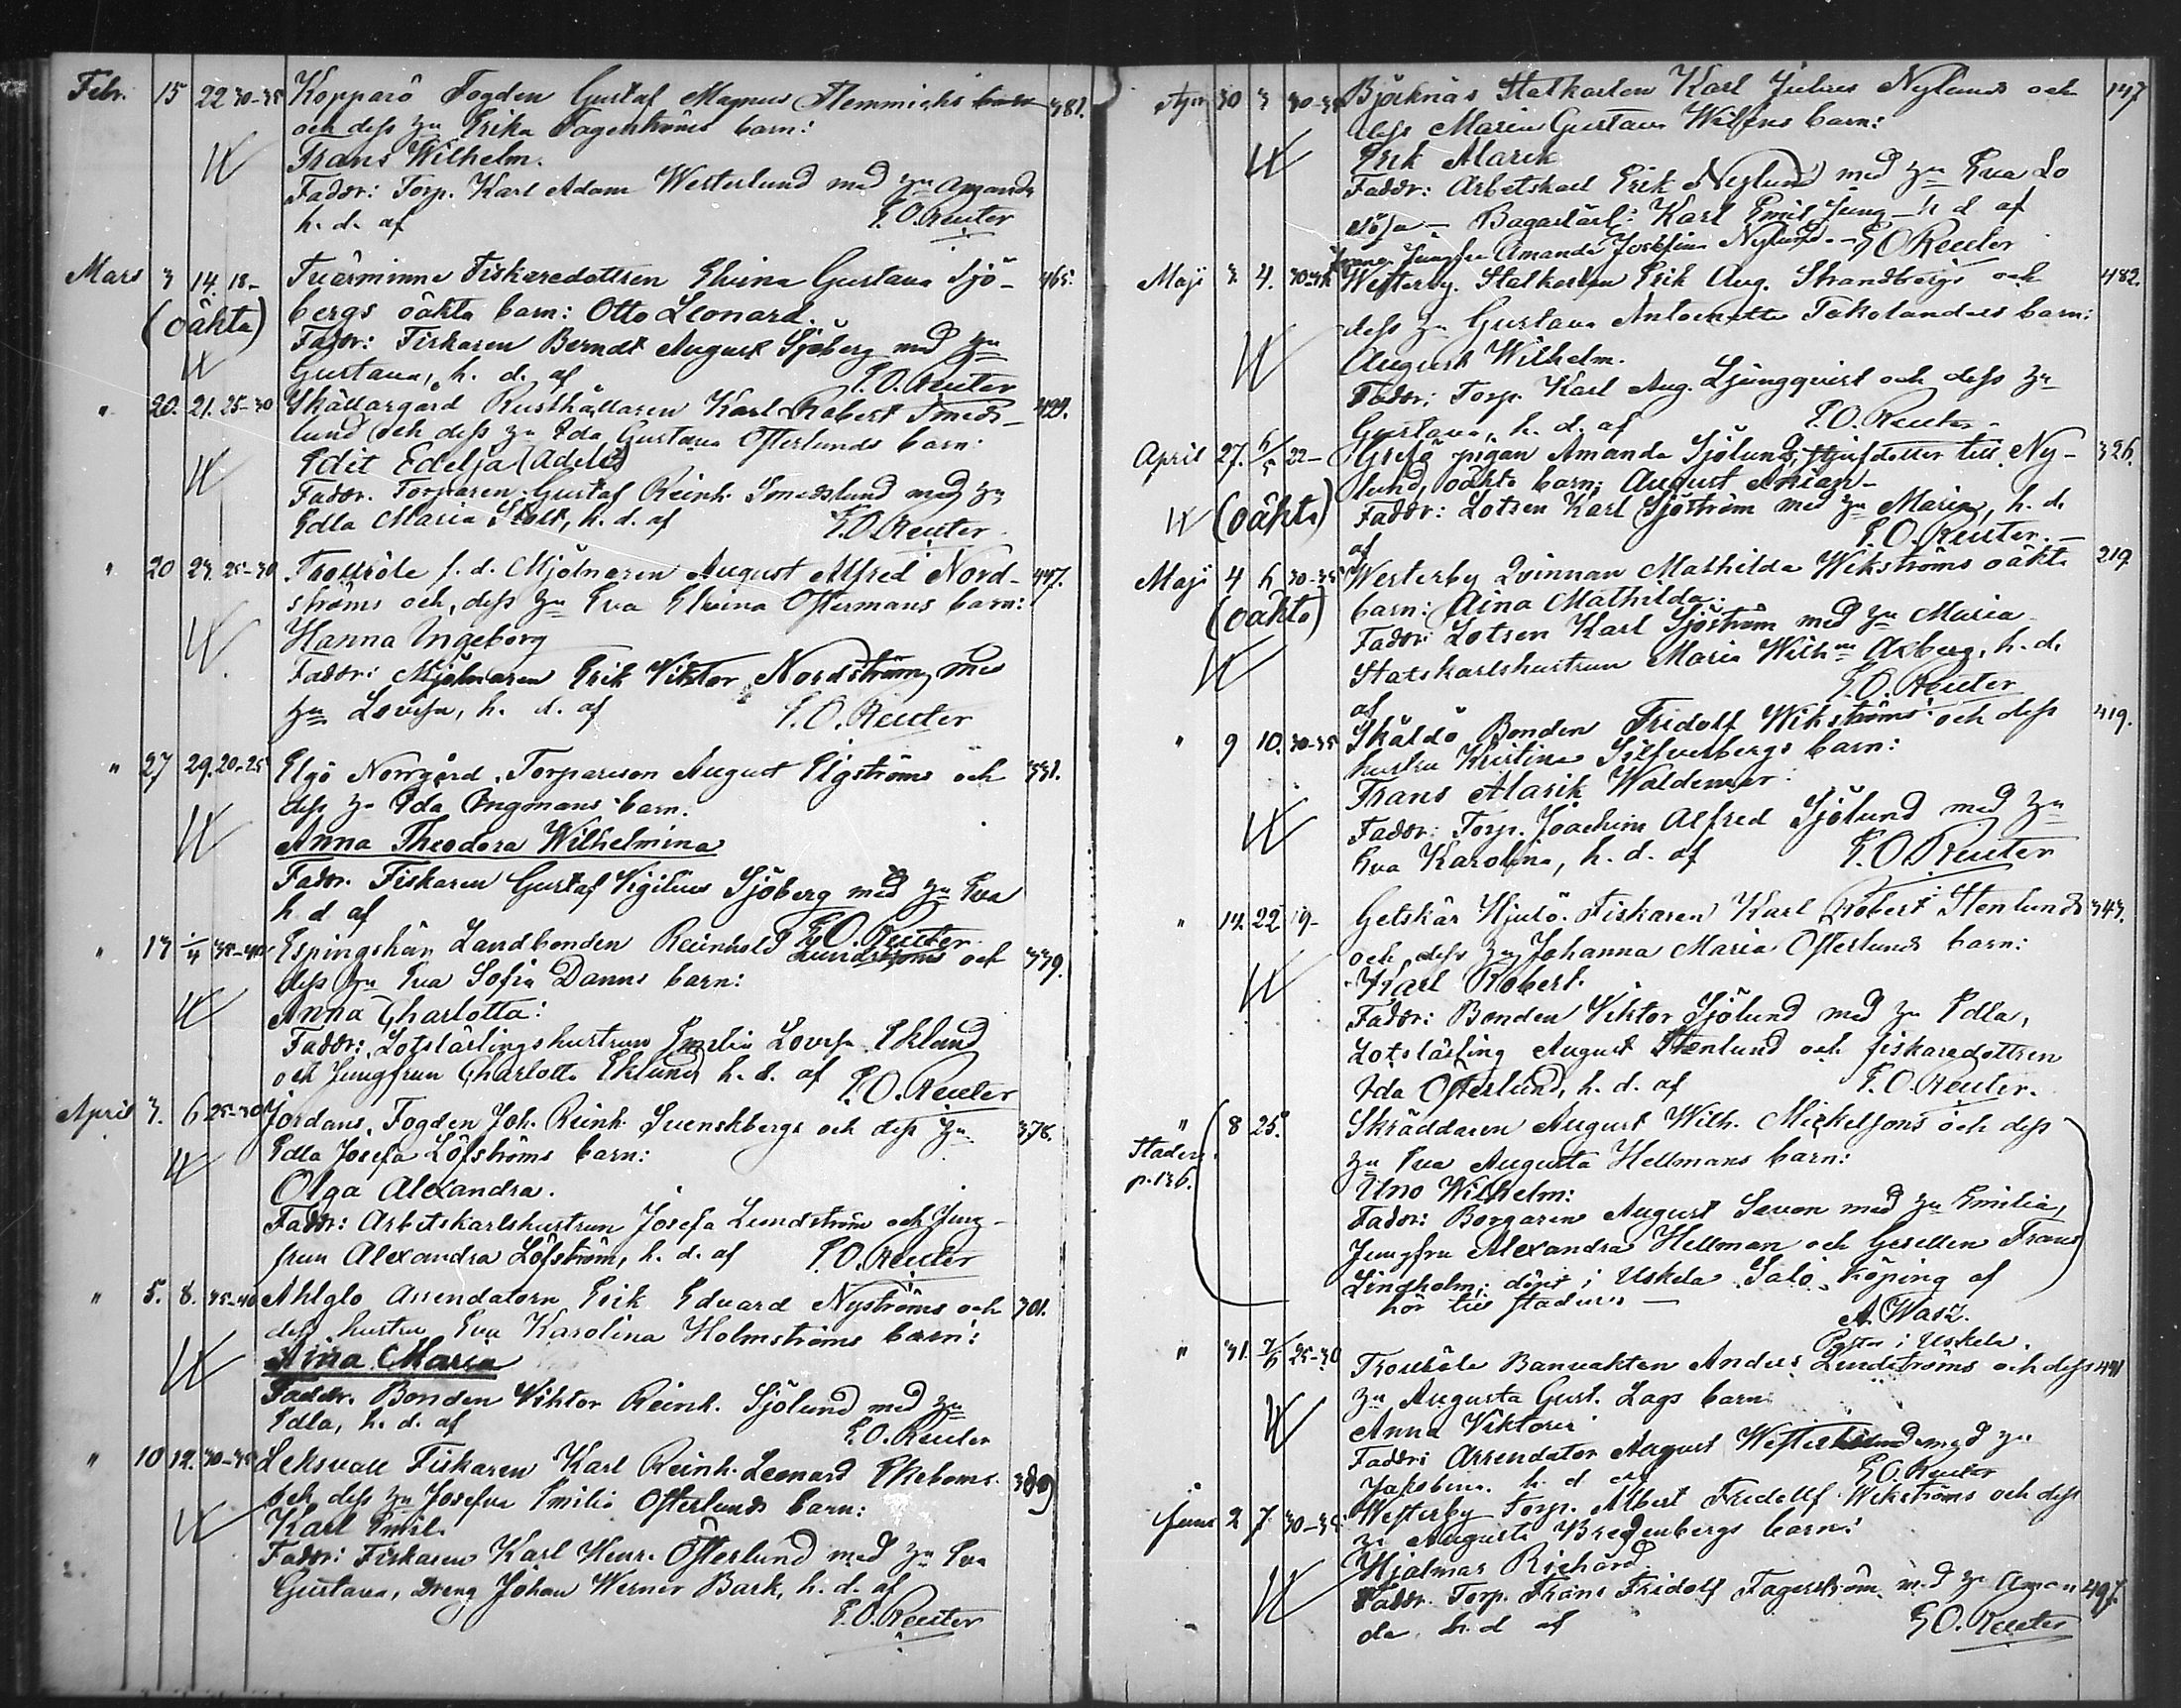 Febr. 15 22 30-35 Kopparö Fogden Gustaf Magnus Flemmichs 381.
och dess hu Erika Fagerströms barn:
Frans Wilhelm.
Faddr: Torp. Karl Adam Westerlund med hu Amanda
h. d. af E. O. Reuter
Mars 3 14. 18- Tvärminne Fiskaredottren Elvina Gustava Sjö- 465.
(oäkta) bergs oäkta barn: Otto Leonard.
Faddr: Fiskaren Berndt August Sjöberg med hu
Gustava, h. d. af E. O. Reuter
" 20. 21. 25-30 Skållargård Rusthållaren Karl Robert Smeds- 424.
lund och dess hu Ida Gustava Österlunds barn:
Edit Edelja (Adele)
Faddr. Torparen Gustaf Reinh. Smedslund med hu
Edla Maria Stolt, h. d. af E. O. Reuter
" 20 23. 25-30 Trollböle f. d. Mjölnaren August Alfred Nord- 447.
ströms och dess hu Eva Elvina Östermans barn:
Hanna Ingeborg
Faddr: Mjölnaren Erik Viktor Nordström med
hu Lovisa, h. d. af E. O. Reuter
" 27 29. 20-25 Elgö Norrgård Torpareson August Elgströms och 331.
dess hu Ida Ingmans barn.
Anna Theodora Wilhelmina
Faddr. Fiskaren Gustaf Vigilius Sjöberg med hu Eva
h. d. af E. O. Reuter
" 13 1/4 35-40 Espingskär Landbonden Reinhold Lundströms och 339.
dess hu Eva Sofia Danns barn:
Anna Charlotta:
Faddr: Lotslärlingshustrun Emelia Lovisa Eklund
och Jungfrun Charlotta Eklund h. d. af E. O. Reuter
April 3. 6 25-30 Jordans, Fogden Joh. Reinh. Svenskbergs och dess hu 378.
Edla Josefa Löfströms barn:
Olga Alexandra.
Faddr: Arbetskarlshustrun Josefa Lundström och Jung-
frun Alexandra Löfström, h. d. af E. O. Reuter
" 5. 8. 35-40 Ahlglo Arrendatorn Erik Edvard Nyströms och 301.
dess hustru Eva Karolina Holmströms barn:
Aina Maria
Faddr. Bonden Viktor Reinh. Sjölund med hu
Edla, h. d. af E. O. Reuter
" 10 12. 30-35 Leksvall Fiskaren Karl Reinh. Leonard Ekeboms
och dess hu Josefina Emilia Österlunds barn:
Karl Emil.
Faddr: Fiskaren Karl Henr. Österlund med hu Eva
Gustava, dreng Johan Werner Bark, h. d. af
E. O. Reuter
30 3 30-35 Björknäs Statkarlen Karl Julius Nylunds och 147
dess Maria Gustava Wiléns barn:
Erik Alarik
Faddr: Arbetskarl Erik Nylund med hu Eva Lo
visa - Bagarlärl: Karl Emil Jung - h d af
Jungfru Amanda Josefina Nylund. - E O Reuter
Maji 2 4. 30-35 Westerby. Statkarlen Erik Aug. Strandbergs och 482.
dess hu Gustava Antoinetta Takolanders barn:
August Wilhelm.
Faddr: Torp. Karl Aug. Ljungqvist och dess hu
Gustava, h. d. af E. O. Reuter.
April 27. 6/5 22- pigan Amanda Sjölund, styfdotter till Ny- 326.
(oäkta) lund, oäkta barn; August Adrian-
Faddr: Lotsen Karl Sjöström med hu Maria, h. d.
af E. O. Reuter. -
Maji 4 6 30-35 Westerby Qvinnan Mathilda Wikströms oäkta 219.
(oäkta) barn: Aina Mathilda.
Faddr: Lotsen Karl Sjöström med hu Maria
Statskarlshustrun Maria Wilh:na Axberg, h. d.
af E. O. Reuter
" 9 10. 30-35 Skåldö Bonden Fridolf Wikströms och dess 419.
hustru Kristina Silfverbergs barn:
Frans Alarik Waldemar
Faddr: Torp. Joachim Alfred Sjölund med hu
Eva Karolina, h. d. af E. O. Reuter
" 14. 22 19- Getskär Hjulö. Fiskaren Karl Robert Stenlunds 343.
och dess hu Johanna Maria Österlunds barn:
Karl Robert.
Faddr: Bonden Viktor Sjölund med hu Edla,
Lotslärling August Stenlund och fiskaredottren
Ida Österlund, h. d. af E. O. Reuter.
" 8 25. Skräddaren August Wilh. Mickelssons och dess
Staden p. 136. hu Eva Augusta Hellmans barn:
Uno Wilhelm:
Faddr: Borgaren August Savon med hu Emilia,
Jungfru Alexandra Hellman och Gesellen Frans
Lindholm; döpt i Uskela Salo Köping af
hör till staden - A. Wasz.
Pastor i Uskela.
" 31. 7/6 25-30 Trollböle Banvakten Anders Lindströms och dess 441
hu Augusta Gust. Lags barn
Anna Viktoria
Faddr: Arrendator August Westerlund med hu
Jakobina. h. d af E. O. Reuter
Juni 2 7 30-35 Westerby Torp. Albert Fridolf Wikströms och dess
hu Augusta Bredenbergs barn:
Hjalmar Richard
Faddr. Torp. Frans Fridolf Fagerström med hu Aman 497.
da h. d af E O. Reuter